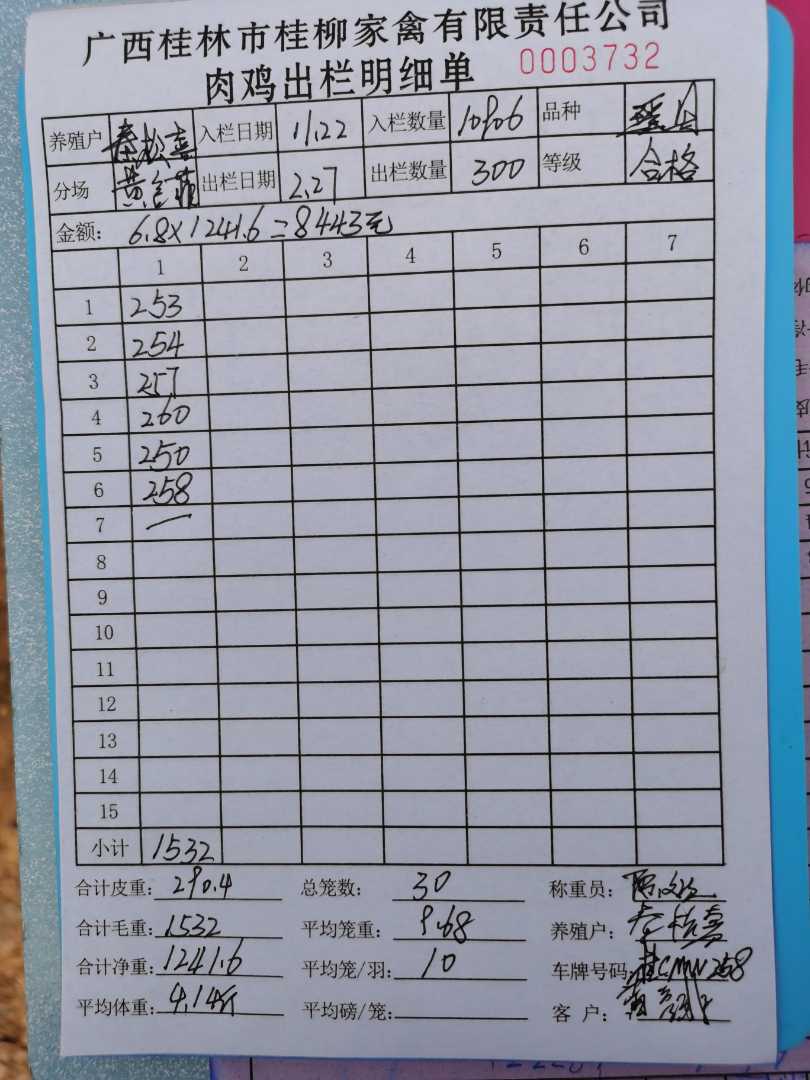 广西桂林市桂柳家禽有限责任公司
肉鸡出栏明细单 0003732
养殖户 秦松喜 入栏日期 11.22 入栏数量 10906 品种
分场 出栏日期 2.27 出栏数量 300 等级 合格
金额: 6.8×1241.6=8443元
1 2 3 4 5 6 7
1 253
2 254
3 257
4 260
5 250
6 258
7 一
8
9
10
11
12
13
14
15
小计 1532
合计皮重: 290.4 总笼数: 30 称重员:
合计毛重: 1532 平均笼重: 9.68 养殖户:
合计净重: 1241.6 平均笼/羽: 10 车牌号码: 桂CMW268
平均体重: 4.14斤 平均磅/笼: 客 户: